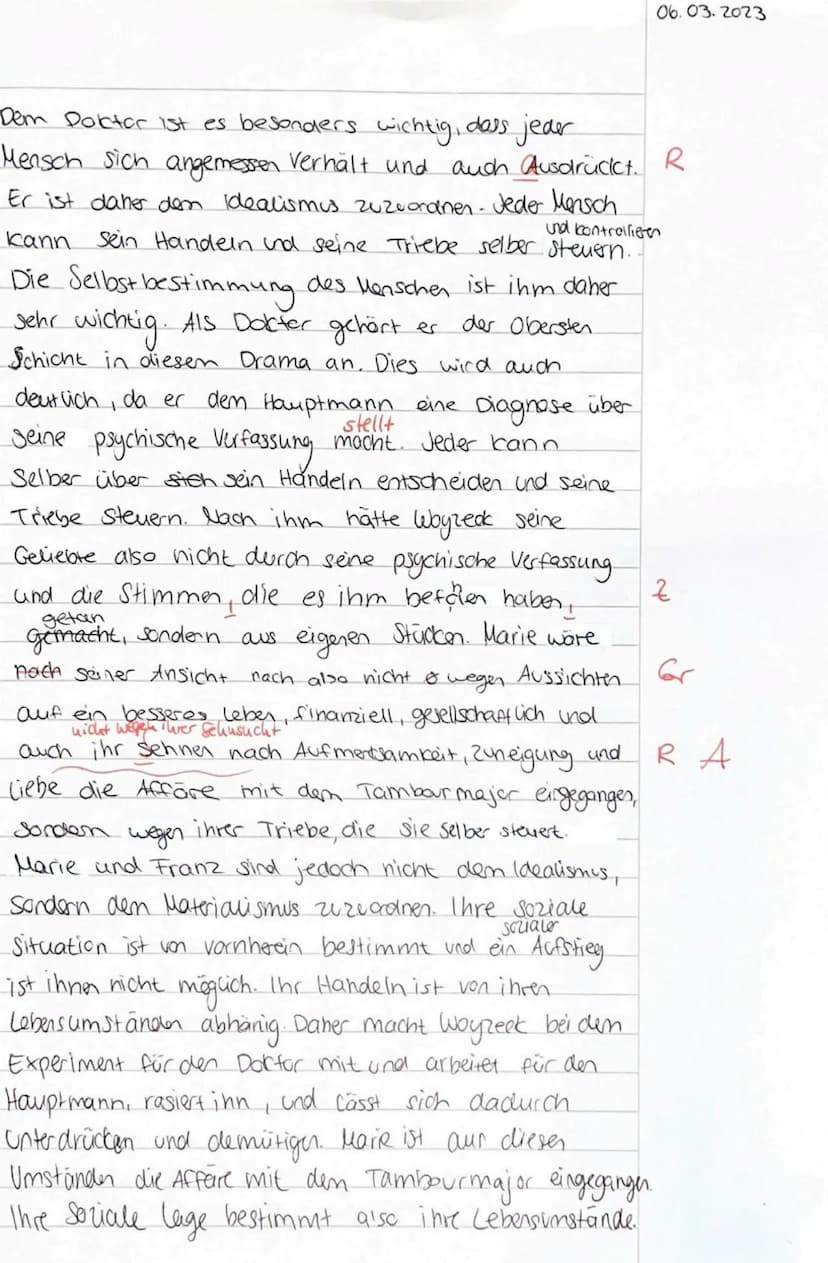 06.03.2023
Dem Doktor ist es besonders wichtig, dass jeder
Mensch sich angemessen verhält und auch Ausdrückt. R
Er ist daher dem Idealismus zuzuordnen. Jeder Mensch
und kontrollieren
kann sein Handeln und seine Triebe selber steuern.
Die Selbstbestimmung des Menschen ist ihm daher
sehr wichtig. Als Dokter gehört er der Obersten
Schicht in diesem Drama an. Dies wird auch
deutlich, da er dem Hauptmann eine Diagnose über
stellt
seine psychische Verfassung macht. Jeder kann
Selber über sich sein Handeln entscheiden und seine
Triebe steuern. Nach ihm hätte Woyzeck seine
Geliebte also nicht durch seine psychische Verfassung
und die Stimmen, die es ihm befohlen haben, Z
getan
gemacht, sondern aus eigenen Stücken. Marie wäre
nach seiner Ansicht nach also nicht wegen Aussichten Gr
auf ein besseres Leben, finanziell, gesellschaftlich und
nicht wegen ihrer Sehnsucht
auch ihr Sehnen nach Aufmerksamkeit, Zuneigung und R A
Liebe die Affäre mit dem Tambourmajor eingegangen,
sondern wegen ihrer Triebe, die sie selber steuert.
Marie und Franz sind jedoch nicht dem Idealismus,
sondern dem Materialismus zuzuordnen. Ihre soziale
sozialer
Situation ist von vornherein bestimmt und ein Aufstieg
ist ihnen nicht möglich. Ihr Handeln ist von ihren
Lebensumständen abhänig. Daher macht Woyzeck bei dem
Experiment für den Doktor mit und arbeitet für den
Hauptmann, rasiert ihn, und lässt sich dadurch
unterdrücken und demütigen. Marie ist aur diesen
Umständen die Affäre mit dem Tambourmajor eingegangen.
Ihre Soziale Lage bestimmt also ihre Lebensumstände.